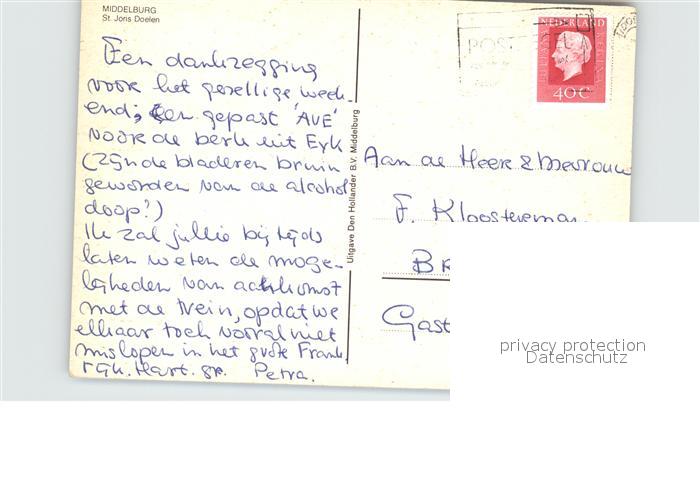 MIDDELBURG
St. Joris Doelen
Een dankzegging
voor het gezellige week-
end; een gepast 'AVE'
voor de berk uit Eyk
(zijn de bladeren bruin
geworden van de alcohol
doop?)
Ik zal jullie bijtijds
laten weten de moge-
lijkheden van aankomst
met de trein, opdat we
elkaar toch vooral niet
mislopen in het grote Frank
rijk. Hart. gr. Petra.
Uitgave Den Hollander B.V. Middelburg
POST
NEDERLAND
40 C
Aan de Heer & Mevrouw
F. Kloosterman
BR
Gast
privacy protection
Datenschutz